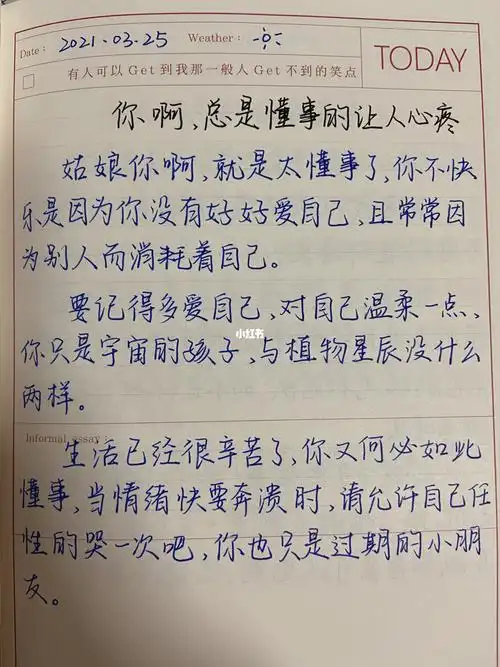 Date: 2021.03.25 Weather:
TODAY
有人可以Get到我那一般人Get不到的笑点
你啊,总是懂事的让人心疼
姑娘你啊,就是太懂事了,你不快
乐是因为你没有好好爱自己,且常常因
为别人而消耗着自己。
要记得多爱自己,对自己温柔一点,
你只是宇宙的孩子,与植物星辰没什么
两样。
小红书
Informal essay:
生活已经很辛苦了,你又何必如此
懂事,当情绪快要奔溃时,请允许自己任
性的哭一次吧,你也只是过期的小朋
友。